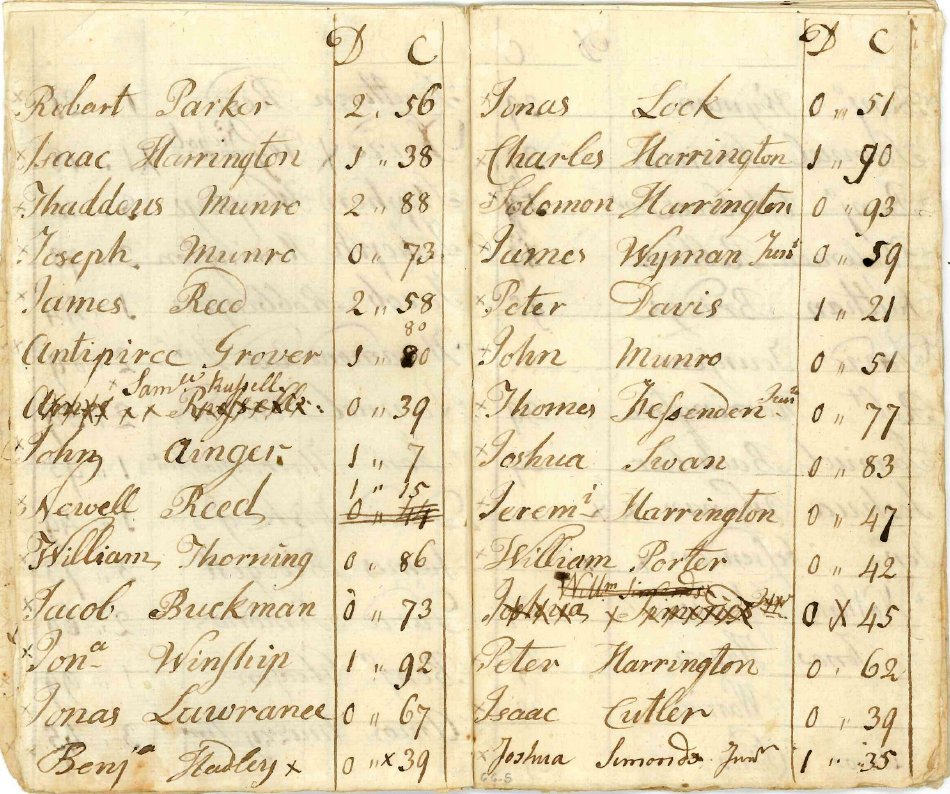 D C
Robart Parker 2 " 56
Isaac Harrington 1 " 38
Thaddeus Munro 2 " 88
Joseph Munro 0 " 73
James Reed 2 " 58
80
Antipiree Grover 1 80
Saml Russell
0 " 39
John Ainger 1 " 7
1 " 15
Newell Reed 0 " 44
William Thorning 0 " 86
Jacob Buckman 0 " 73
Jona Winship 1 " 92
Jonas Lawranee 0 " 67
Benja Hadley x 0 " x 39
D C
Jonas Lock 0 " 51
Charles Harrington 1 " 90
Solomon Harrington 0 " 93
James Wyman Junr 0 " 59
Peter Davis 1 " 21
John Munro 0 " 51
Thomes Fessenden Junr 0 " 77
Joshua Swan 0 " 83
Jeremi Harrington 0 " 47
William Porter 0 " 42
Willm Simonds
Joshua Simonds Junr 0 X 45
Peter Harrington 0 " 62
Isaac Cutler 0 " 39
Joshua Simonds Junr 1 " 35
66-5